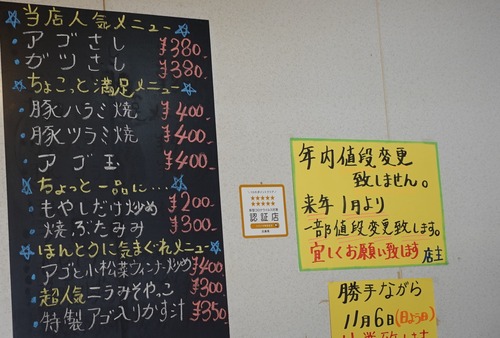 当店人気メニュー
アゴさし ¥380
ガツさし ¥380
ちょこっと満足メニュー
豚ハラミ焼 ¥400
豚ツラミ焼 ¥400
アゴ玉 ¥400
ちょっと一品に...
もやしだけ炒め ¥200
焼ぶたみみ ¥300
ほんとうに気まぐれメニュー
アゴと小松菜ウィンナー炒め ¥400
超人気ニラみそやっこ ¥300
特製アゴ入りかす汁 ¥350
認証店
年内値段変更
致しません。
来年1月より
一部値段変更致します。
宜しくお願い致します 店主
勝手ながら
11月6日(日よう日)